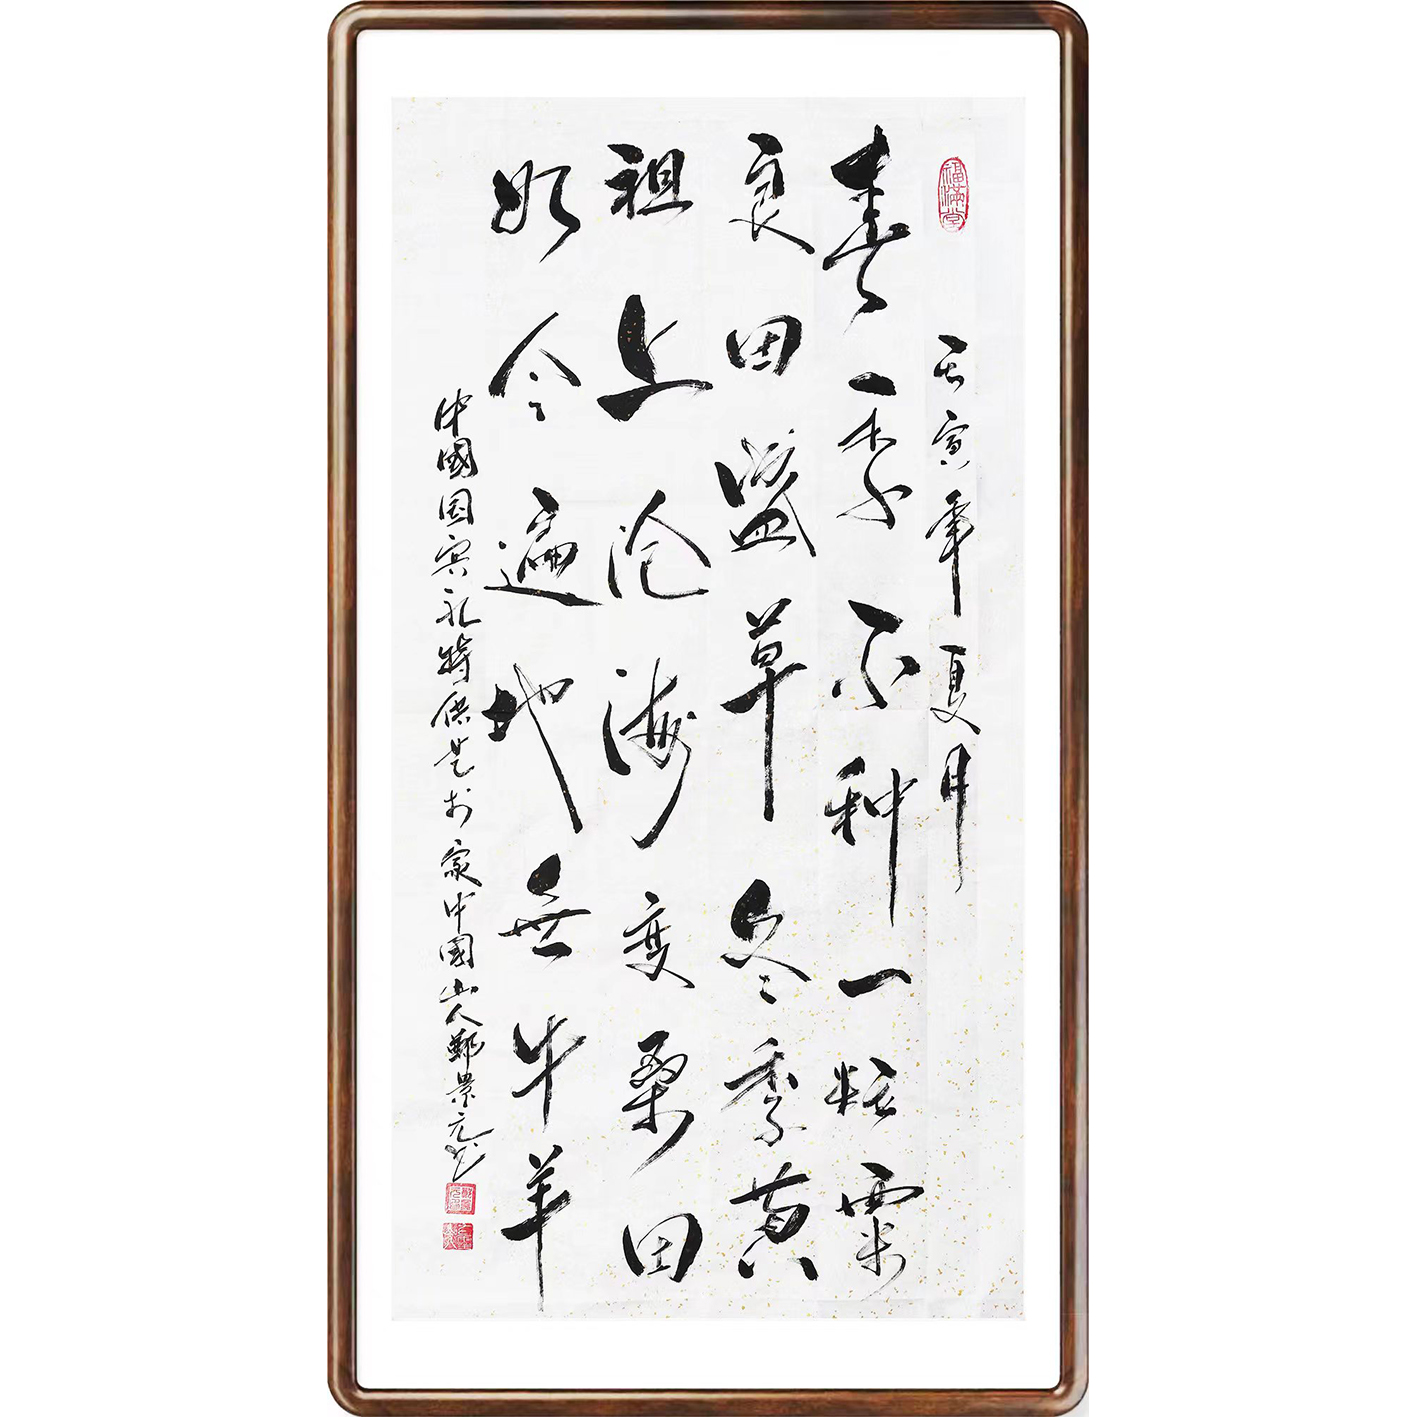 福满堂
壬寅年夏月
春季不种一粒粟
良田盛草冬季黄
祖上沧海变桑田
如今遍地无牛羊
中國国宾礼特供艺术家中国山人郑景元书